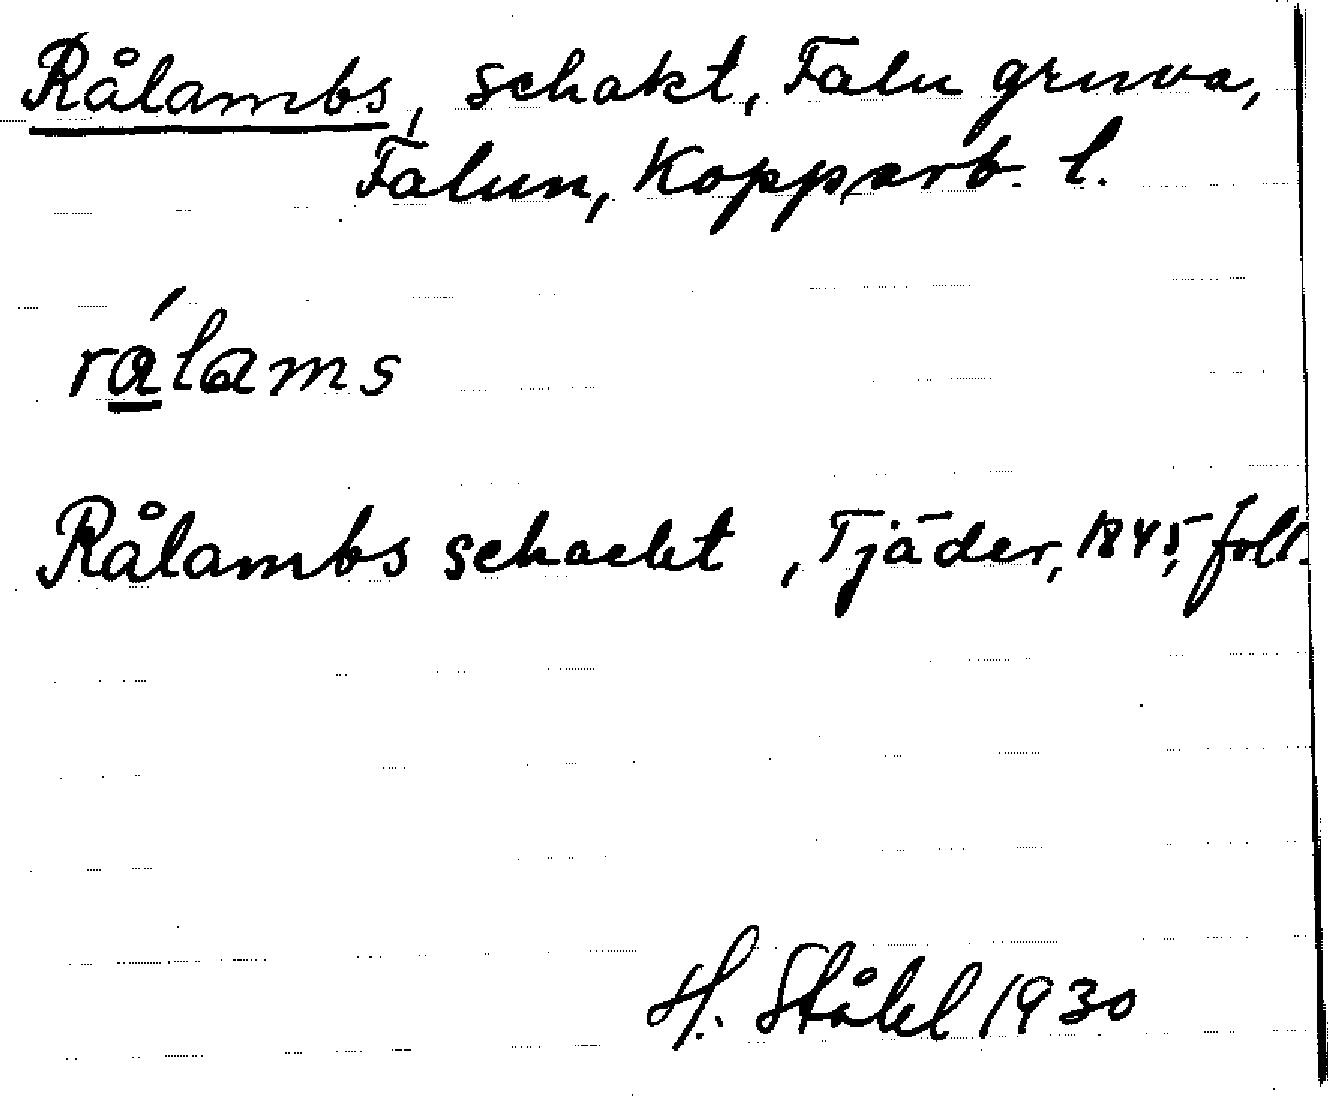 Rålambs, schakt, Falu gruva,
Falun, Kopparb. l.
rá̱lams
Rålambs schackt, Tjäder, 1845, foll.
H. Ståhl 1930